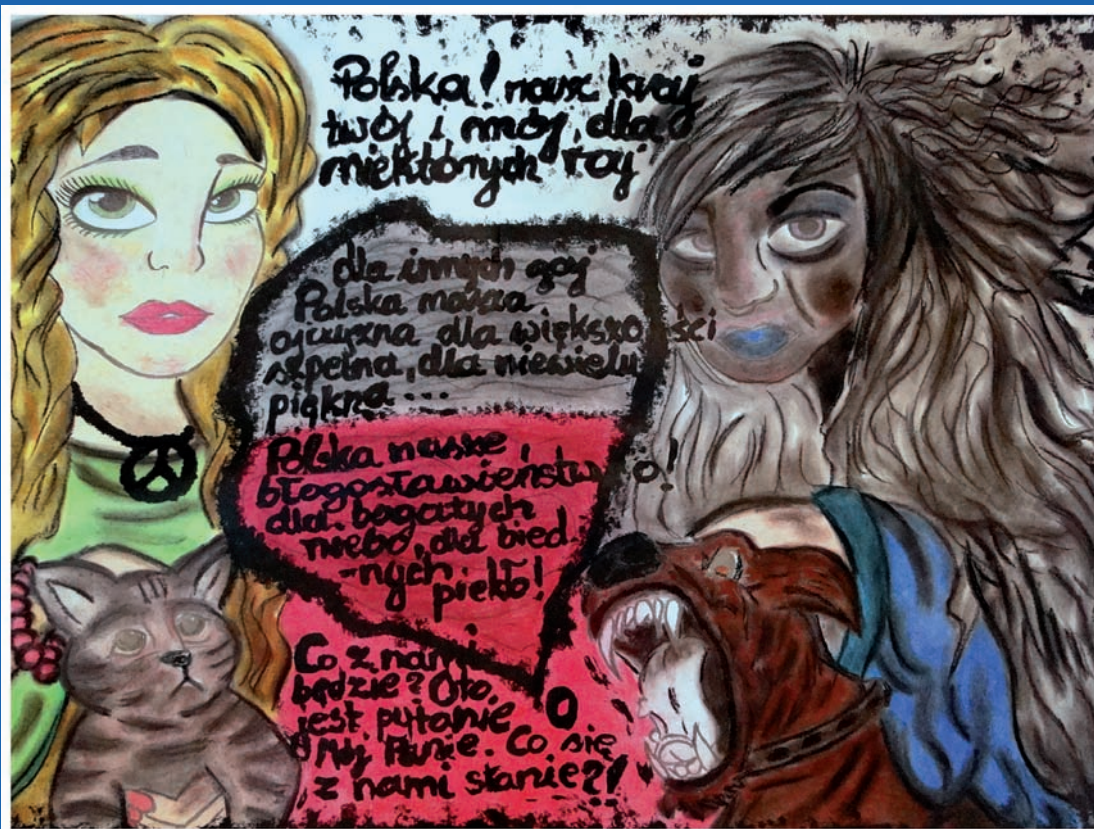 Polska! nasz kraj
twój i mój, dla
niektórych raj
dla innych gaj
Polska nasza
ojczyzna dla większości
szpetna, dla niewielu
piękna ...
Polska nasze
błogosławieństwo!
dla bogatych
niebo, dla bied
-nych piekło!
Co z nami
będzie? Oto
jest pytanie O
Mój Panie. Co się
z nami stanie?!